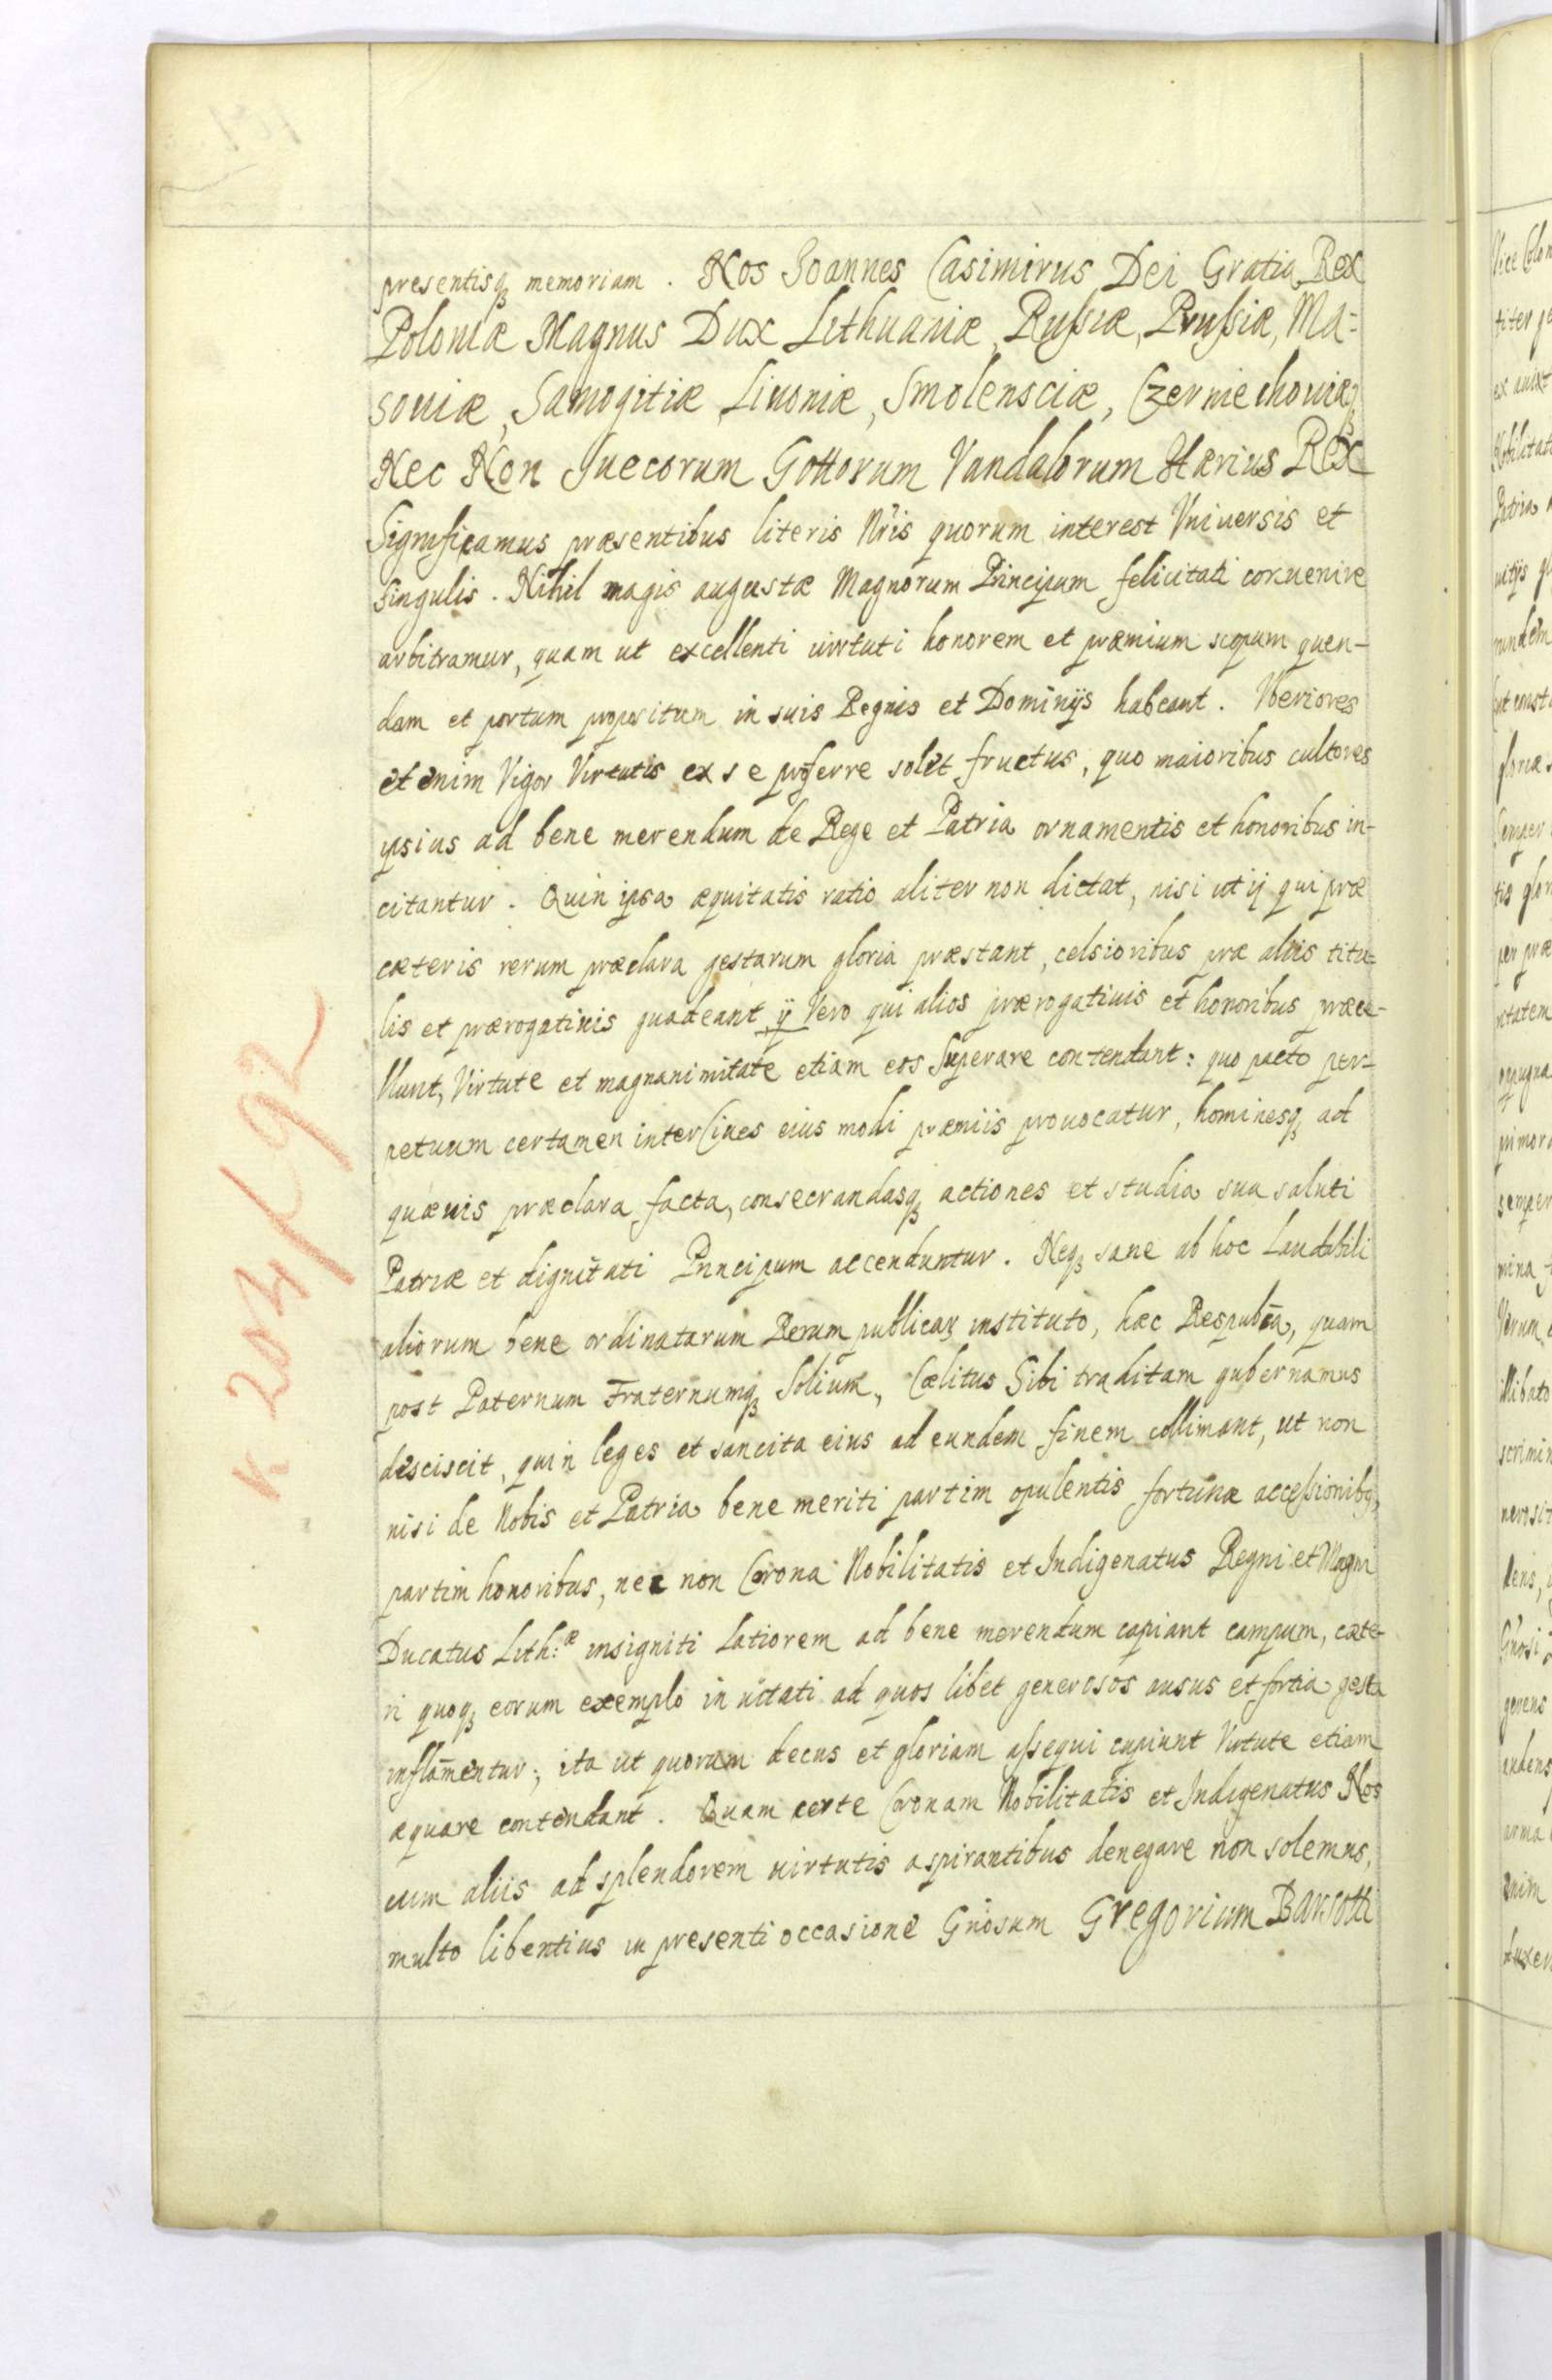 presentisq₃ memoriam. Nos Joannes Casimirus Dei Gratia Rex
Poloniæ Magnus Dux Lithuaniæ, Rußiæ, Prußiæ, Ma=
souiæ, Samogitiæ, Liuoniæ, Smolensciæ, Czerniechouiæq₃
Nec Non Suecorum Gottorum Vandalorum Hærius Rex
Significamus præsentibus literis Nr̃is quorum interest Vniuersis et
singulis. Nihil magis augustæ Magnorum Principum felicitati conuenire
arbitramur, quam ut excellenti uirtuti honorem et præmium scopum quen-
dam et portum propositum in suis Regnis et Dominÿs habeant. Vberiores
et enim Vigor Virtutis ex se proferre solet fructus, quo maioribus cultores
ipsius ad bene merendum de Rege et Patria ornamentis et honoribus in-
citantur. Quin ipsa æquitatis ratio aliter non dictat, nisi ut ij qui præ
cæteris rerum præclara gestarum gloria præstant, celsioribus præ aliis titu-
lis et prærogatiuis guadeant, ij Vero qui alios prærogatiuis et honoribus præce-
llunt, Virtute et magnanimitate etiam eos Superare contendant: quo pacto per-
petuum certamen inter Ciues eius modi præmiis prouocatur, hominesq₃ ad
quæuis præclara facta, consecrandasq₃ actiones et studia sua saluti
Patriæ et dignitati Principum accenduntur. Neq₃ sane ab hoc Laudabili
aliorum bene ordinatarum Rerum publicaꝝ instituto, hæc Respubĩa, quam
post Paternum Fraternumq₃ Solium, Cælitus Sibi traditam gubernamus
desciscit, quin leges et sancita eius ad eundem finem collimant, ut non
nisi de Nobis et Patria bene meriti partim opulentis fortunæ acceßionibq₃,
partim honoribus, nec non Corona Nobilitatis et Indigenatus Regni et Magni
Ducatus Lith:æ insigniti Latiorem ad bene merendum capiant campum, cæte-
ri quoq₃ eorum exemplo in uitati ad quos libet generosos ausus et fortia gesta
inflam̃entur; ita ut quorum decus et gloriam aßequi cupiunt Virtute etiam
æquare contendant. Quam certe Coronam Nobilitatis et Indigenatus Nos
cum aliis ad splendorem uirtutis aspirantibus denegare non solemus,
multo libentius in presenti occasione Gñosum Gregorium Barsotti
K 203/92